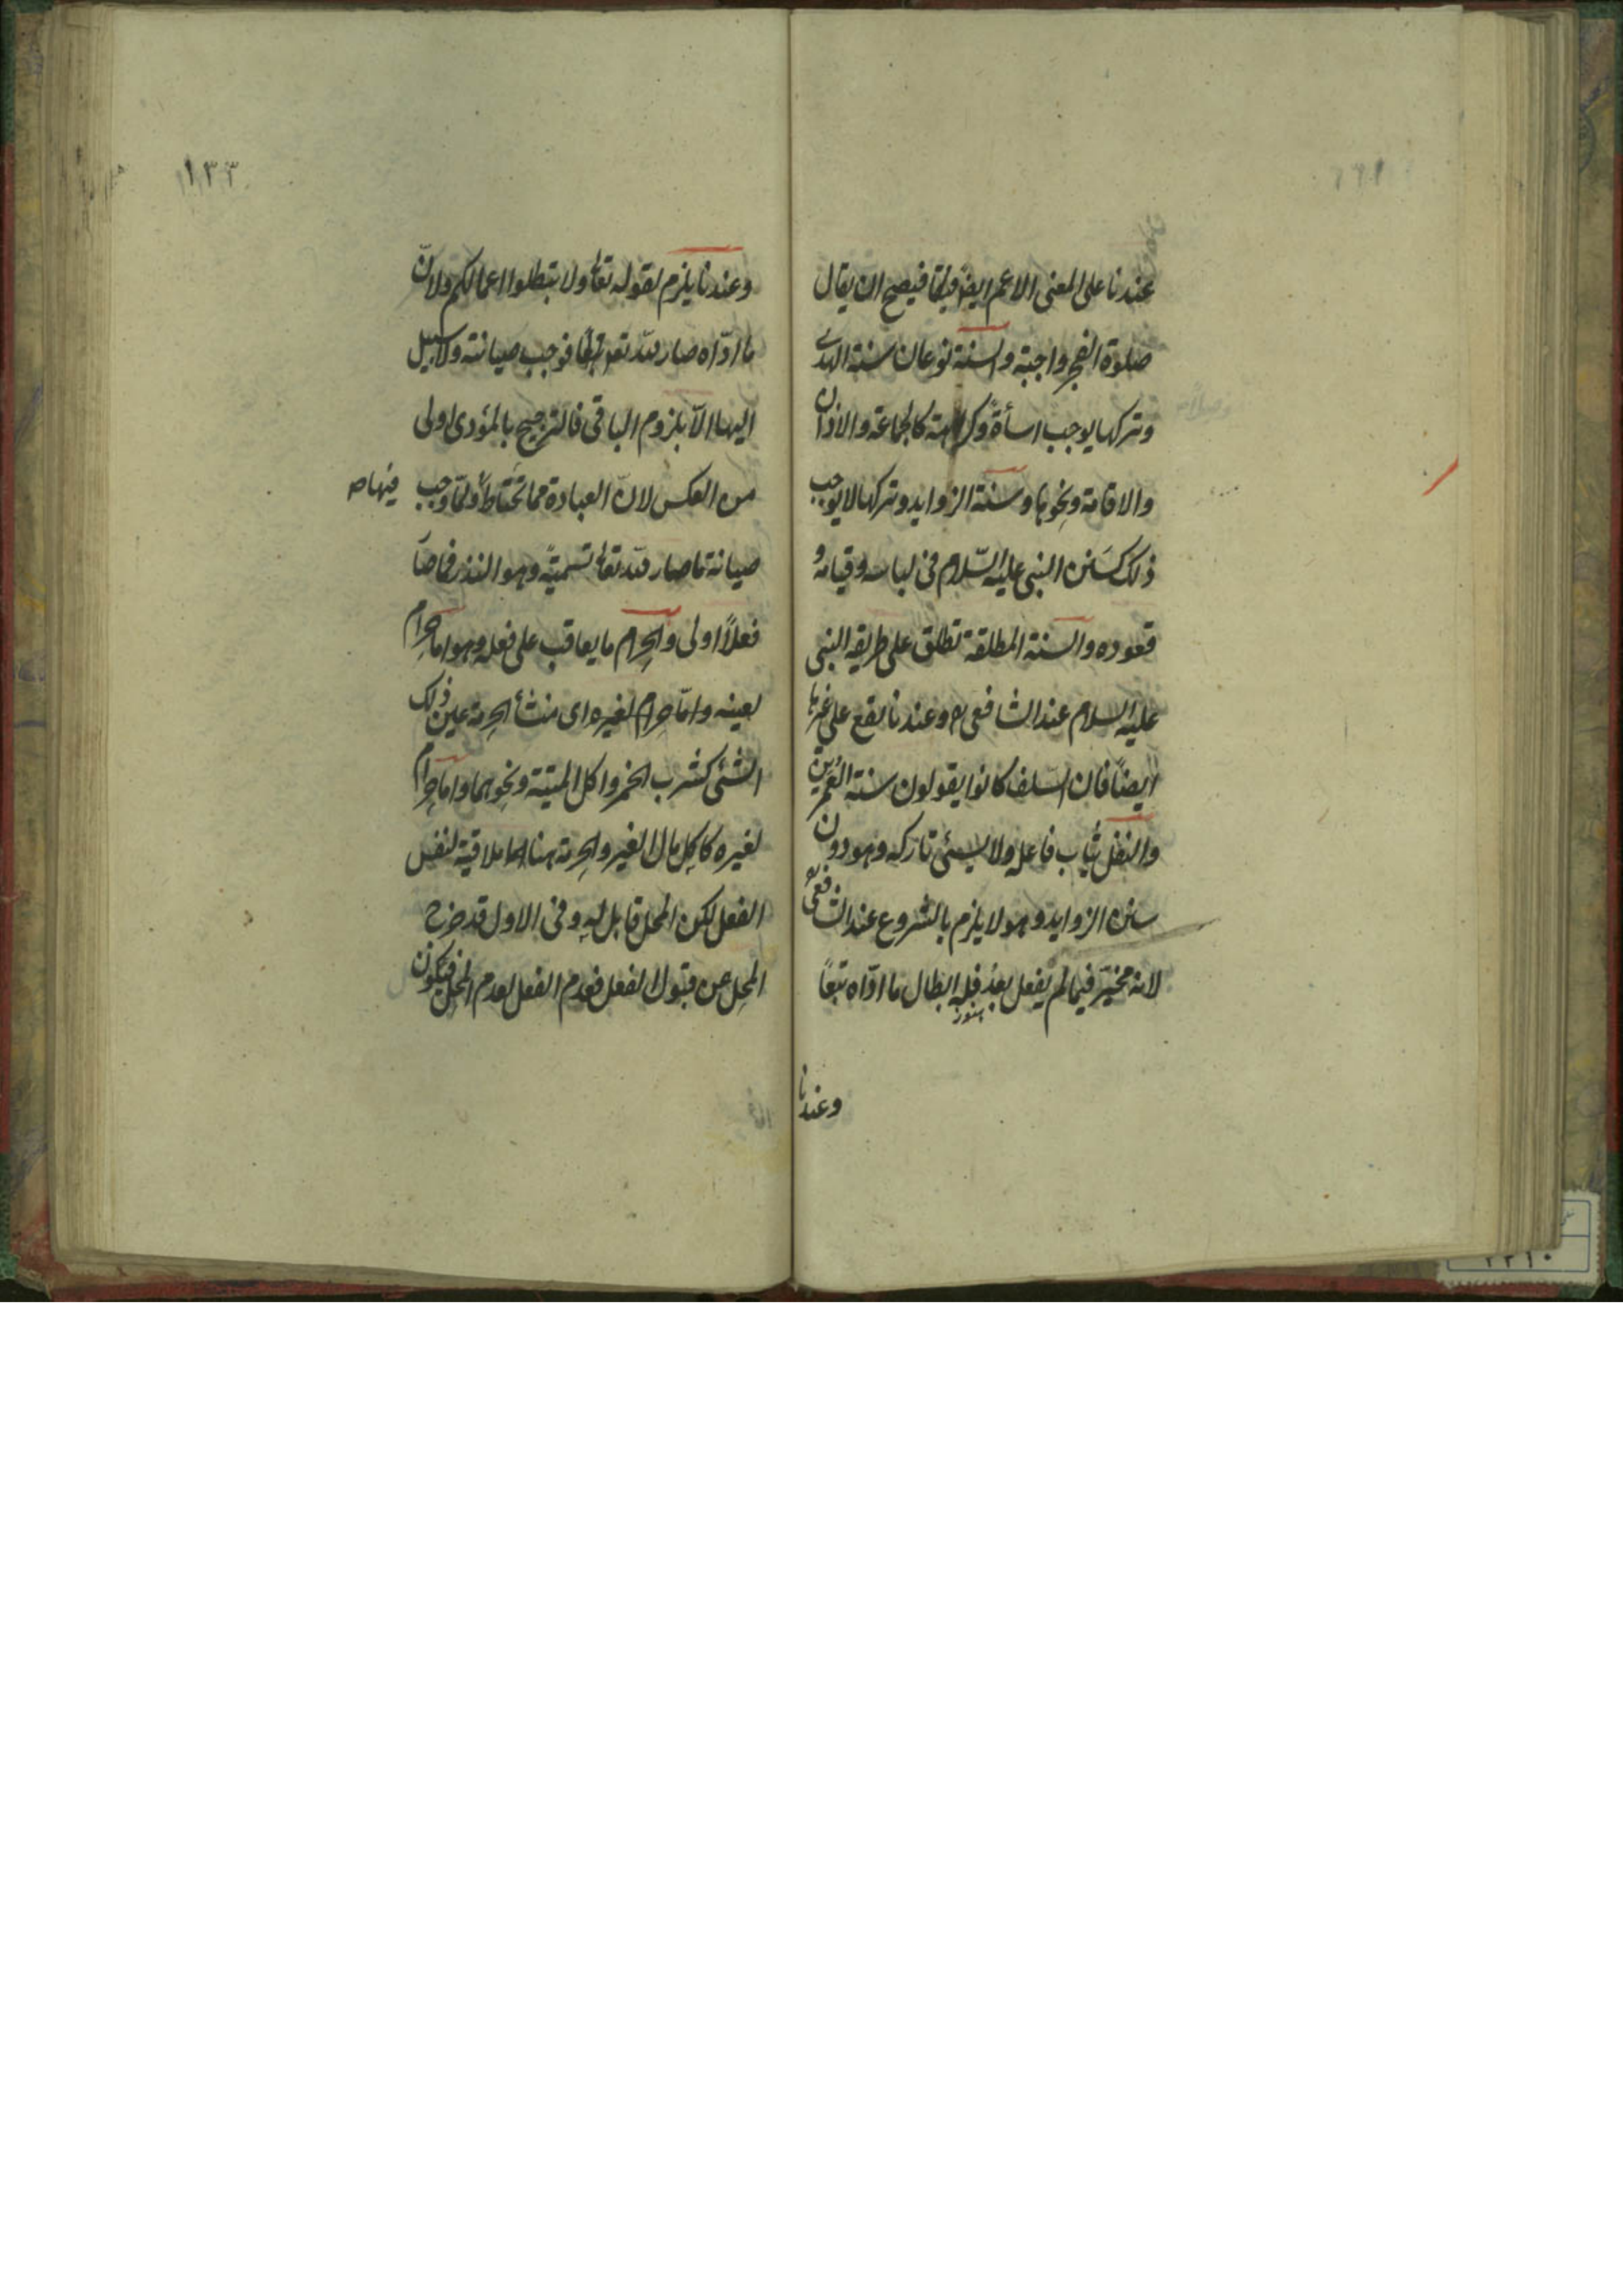 عندنا على المعنى الاعم ايضاً فيصح ان يقال
صلوة الفجر واجبة والسنة نوعان سنة الهدى
وتركها يوجب اسأة وكراهة كالجماعة والاذان
والاقامة ونحوها وسنة الزوايد وتركها لا يوجب
ذلك كسَنن النبى عليه السّلام فى لباسه وقيامه و
قعوده والسنة المطلقة تطلق على طريقه النبى
عليه السلام عند الشافعى وعندنا يقع على غيرها
ايضاً فان السّلف كانوا يقولون سنة العُمَرين
والنفل يُثاب فاعله ولا يسئى تاركه وهو دون
سنن الزوايد وهو لا يلزم بالشروع عند الشافعى
لانه مخيّر فيما لم يفعل بعد فله ابطال ما ادّاه تبعاً
هنوز
وعندنا
١٣٣
وعندنا يلزم لقوله تعا ولا تبطلوا اعمالكم ولانّ
ما ادّاه صار لله تع فوجب صيانته ولا سبيل
اليها الّا بلزوم الباقى فالترجيح بالمؤدى اولى
من العكس لانّ العبادة مما تحتاط ولمّا وجب
فيها صح
صيانة ما صار لله تعا تسميةً وهو النذر فما صار
فعلاً اولى والحرام ما يعاقب على فعله وهو اما حرام
لعينه وامّا حرام لغيره اى منشأ الحرمة عين ذلك
الشئ كشرب الخمر واكل الميتة ونحوهما واما حرام
لغيره كاكل مال الغير والحرمة هنا ملاقية لنفس
الفعل لكن المحل قابل له وفى الاول قد خرج
المحل عن قبول الفعل فعدم الفعل لعدم المحل فيكون